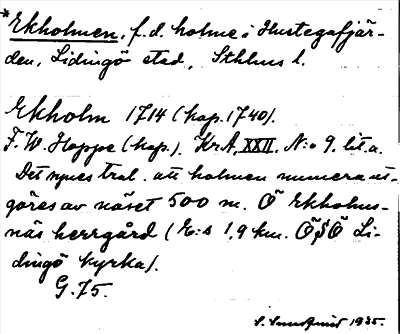 *Ekholmen, f.d. holme i Hustegafjär-
den, Lidingö stad, Sthlms l.
Ekholm 1714 (kap. 1740).
F. W. Hoppe (kap.). KrA, XXII. N:o 9. lit. a.
Det synes tral. att holmen numera ut-
göres av näset 500 m. Ö Ekholms-
näs herrgård (E:s 1,9 km. ÖSÖ Li-
dingö kyrka).
G. 75.
1935.